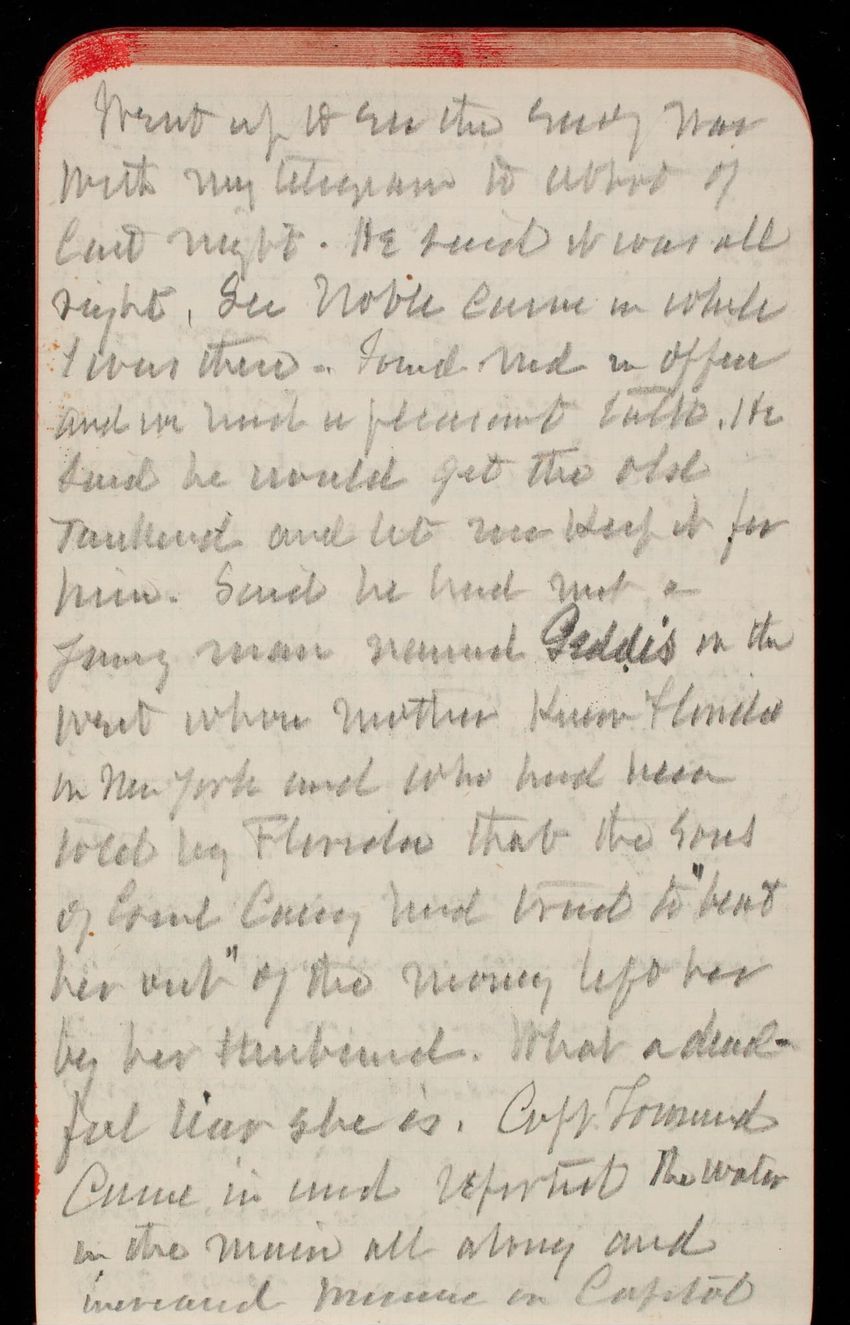 Went up to see the Secy War
with my telegram to Abbot of
last night. He said it was all
right, Sec Noble came in while
I was there - Found Ned in office
and we had a pleasant talk. He
said he would get the old
Tankard and let me keep it for
him. Said he had met a
young man named Geddis in the
West whose mother knew Florida
in New York and who had been
told by Florida that the sons
of Coml Casey had tried to "beat
her out" of the money left her
by her Husband. What a dread-
ful liar she is. Capt
Came in and reported the water
in the main all along and
increased pressure in Capitol